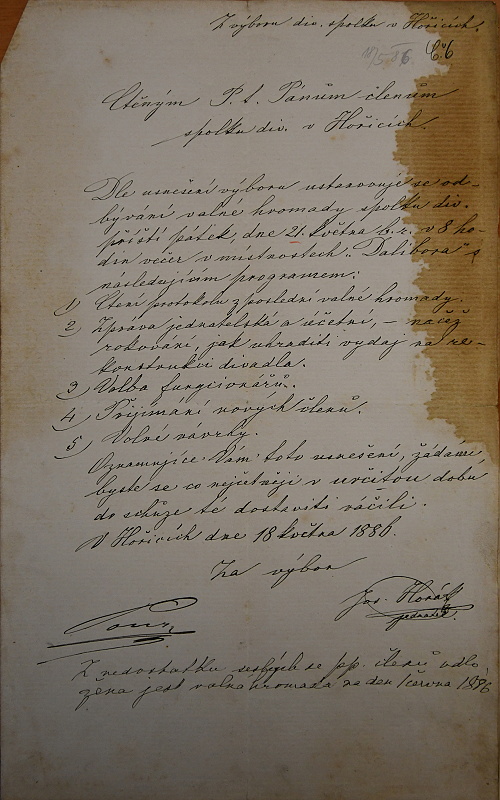 Z výboru div. spolku v Hořicích.
Č. 6
Ctěným P. t. Pánům členům
spolku div. v Hořicích.
Dle usnešení výboru ustanovuje se od-
bývání valné hromady spolku div.
příští pátek, dne 21. května b. r. v 8 ho-
din večer v místnostech "Dalibora" s
následujícím programem:
1) Čtení protokolu z poslední valné hromady.
2) Zpráva jednatelská a účetní, – načež
rokování, jak uhraditi vydaj na re-
konstrukci divadla.
3) Volba funkcionářů.
4) Přijímání nových členů.
5) Volné návrhy.
Oznamujíce Vám toto usnešení, žádáme,
byste se co nejčetněji v určitou dobu
do schůze té dostaviti ráčili.
V Hořicích dne 18 května 1886.
Za výbor
Jos. Horák
jednatel.
Z nedostatku sešlých se pp. členů odlo-
žena jest valná hromada na den 1 června 1886